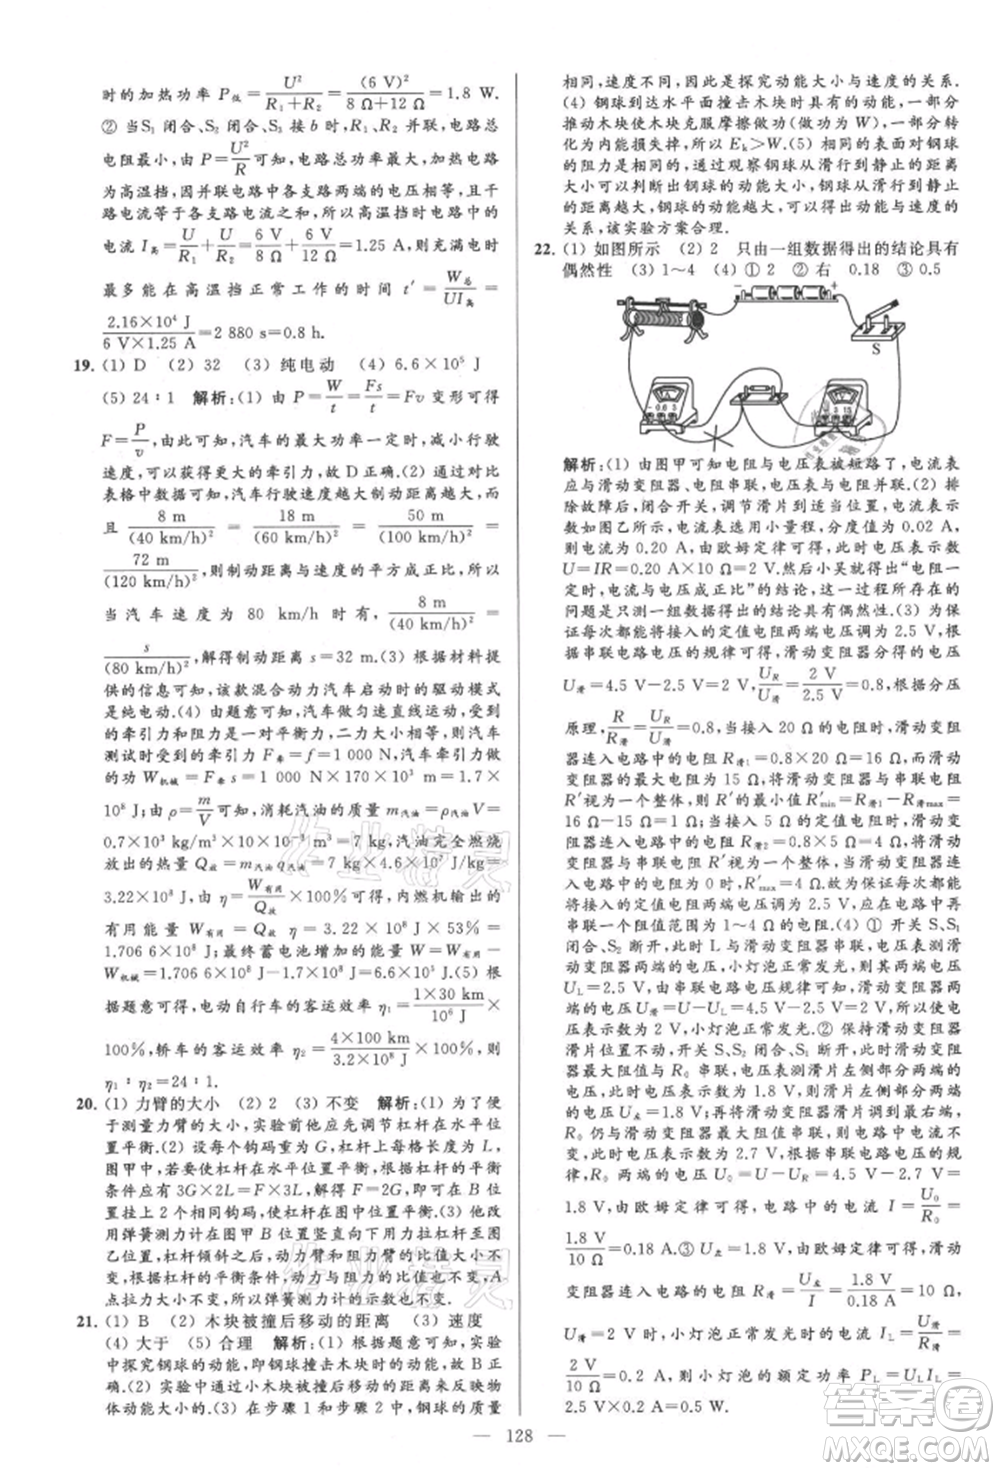 时的加热功率 P低=U²/(R₁+R₂)=(6 V)²/(8 Ω+12 Ω)=1.8 W.
② 当S₁ 闭合、S₂ 闭合、S₃ 接 b 时,R₁、R₂ 并联,电路总
电阻最小,由 P=U²/R可知,电路总功率最大,加热电路
为高温挡,因并联电路中各支路两端的电压相等,且干
路电流等于各支路电流之和,所以高温挡时电路中的
电流 I高=U/R₁+U/R₂=6 V/8 Ω+6 V/12 Ω=1.25 A,则充满电时
最多能在高温挡正常工作的时间 t′=W总/UI高=
2.16×10⁴ J/(6 V×1.25 A)=2 880 s=0.8 h.
19. (1) D (2) 32 (3) 纯电动 (4) 6.6×10⁵ J
(5) 24∶1 解析:(1) 由 P=W/t=Fs/t=Fv 变形可得
F=P/v,由此可知,汽车的最大功率一定时,减小行驶
速度,可以获得更大的牵引力,故 D 正确.(2) 通过对比
表格中数据可知,汽车行驶速度越大制动距离越大,而
且 8 m/(40 km/h)²=18 m/(60 km/h)²=50 m/(100 km/h)²=
72 m/(120 km/h)²,则制动距离与速度的平方成正比,所以
当汽车速度为 80 km/h 时有,8 m/(40 km/h)²=
s/(80 km/h)²,解得制动距离 s=32 m.(3) 根据材料提
供的信息可知,该款混合动力汽车启动时的驱动模式
是纯电动.(4) 由题意可知,汽车做匀速直线运动,受到
的牵引力和阻力是一对平衡力,二力大小相等,汽车
测试时受到的牵引力 F牵=f=1 000 N,汽车牵引力所
做的功 W机械=F牵s=1 000 N×170×10³ m=1.7×
10⁸ J;由 ρ=m/V可得,消耗汽油的质量 m汽油=ρ汽油V=
0.7×10³ kg/m³×10×10⁻³ m³=7 kg,汽油完全燃烧
放出的热量 Q放=m汽油q汽油=7 kg×4.6×10⁷ J/kg=
3.22×10⁸ J,由 η=W有用/Q放×100%可得,内燃机输出的
有用能量 W有用=Q放η=3.22×10⁸ J×53%=
1.706 6×10⁸ J,最终蓄电池增加的能量 W=W有用-
W机械=1.706 6×10⁸ J-1.7×10⁸ J=6.6×10⁵ J.(5) 根
据题意可得,电动自行车的客运效率 η₁=1×30 km/10⁶ J×
100%,轿车的客运效率 η₂=4×100 km/3.2×10⁸ J×100%,则
η₁∶η₂=24∶1.
20. (1) 力臂的大小 (2) 2 (3) 不变 解析:(1) 为了便
于测量力臂的大小,实验前他应先调节杠杆在水平位
置平衡.(2) 设每个钩码重为G,杠杆上每格长度为 L,
图甲中,杠杆在水平位置平衡,根据杠杆的平衡
条件应为 3G×2L=F×3L,解得 F=2G,即应在B 位置
挂上 2 个相同钩码,使杠杆在图中位置平衡.(3) 他改
用弹簧测力计在图甲 B 位置竖直向下用力拉杠杆到图
乙位置,杠杆倾斜之后,动力臂和阻力臂之比大小不变,
根据杠杆的平衡条件,动力与阻力的比值也不变,A
点拉力大小不变,所以弹簧测力计的示数也不变.
21. (1) B (2) 木块被撞后移动的距离 (3) 速度
(4) 大于 (5) 合理 解析:(1) 由题意可知,实验中探
究的是钢球的动能,即钢球撞击木块时的动能,故 B 正
确.(2) 实验中通过小木块被撞后移动的距离来反映
物体动能的大小.(3) 在步骤 1 和步骤 2 中,钢球的质量
相同,速度不同,因此是探究动能大小与速度的关系.
(4) 钢球到达水平面撞击木块时具有的动能,一部分
推动木块使木块克服摩擦做功(做功为 W),一部分转化
为内能损失掉,所以 Eₖ>W.(5) 相同的表面对钢球
的阻力是相同的,通过观察钢球从滑行到静止的距离
大小可以判断出钢球的动能大小,钢球从滑行到静止
的距离越大,钢球的动能越大;滑行的距离越小,动能越
小,故该实验方案合理.
22. (1) 如图所示 (2) 2 只由一组数据得出的结论具有
偶然性 (3) 1~4 (4) ① 2 ② 右 0.18 ③ 0.5
S
解析:(1) 由图甲可知电阻与电压表被短路了,电流表
应与滑动变阻器、电阻串联,电压表与电阻并联.(2) 排
除故障后,闭合开关,调节滑片到适当位置,电流表示
数如图乙所示,电流表选用小量程,分度值为 0.02 A,
则示数为 0.20 A,由欧姆定律可知,此时电压表示数
U=IR=0.20 A×10 Ω=2 V,然后小吴得出“电阻一
定时,电流与电压成正比”的结论,这一过程中存在的
问题是只测一组数据得出的结论具有偶然性.(3) 为
保证每次都能将接入的定值电阻两端电压控制为2 V,
由串联电路电压的规律可得,滑动变阻器两端电压
U滑=4.5 V-2 V=2.5 V,则U_R/U滑=2 V/2.5 V=0.8,根据分压
原理,R/R滑=U_R/U滑=0.8,当接入 20 Ω 的电阻时,滑动变阻
器连入电路中的电阻 R滑1=0.8×20 Ω=16 Ω,而滑动
变阻器的最大电阻为15 Ω,将滑动变阻器与串联电阻
视为一个整体,则 R′的最小值为 R′min=R滑1-R滑max=
16 Ω-15 Ω=1 Ω;当接入 5 Ω 的电阻时,滑动变阻器
连入电路的电阻 R滑2=0.8×5 Ω=4 Ω,将滑动变阻
器与串联电阻视为一个整体,当滑动变阻器接入电
路中的电阻为 0 时,R′max=4 Ω,故为保证每次都能将接入的
定值电阻两端电压控制为 2 V,小明在电路中再
串联一个阻值范围为 1~4 Ω 的电阻.(4) ① 开关 S、S₁
闭合、S₂ 断开时,此时 L 与滑动变阻器串联,电压表测滑动
变阻器两端的电压,小灯泡正常发光时,灯泡两端电压
U_L=2.5 V,由串联电路电压规律可知,滑动变阻器两
端电压为 U滑=U-U_L=4.5 V-2.5 V=2 V,所以电
压表示数为 2 V,小灯泡正常发光.② 保持滑动变阻器
滑片位置不动,开关 S、S₂ 闭合、S₁ 断开,滑动变阻
器与 R₀ 串联,电压表测滑片左侧部分两端
电压,U左为 1.8 V,再将滑片滑到最右端,
R₀ 仍与滑动变阻器串联,由于电路中电流不
变,电压表示数为 2.7 V,即滑动变阻器两端电压为 2.7 V,
所以 R₀ 两端的电压 U₀=4.5 V-2.7 V=
1.8 V,由欧姆定律可得,电路中的电流 I=U₀/R₀=
1.8 V/10 Ω=0.18 A.③ U左=1.8 V,由欧姆定律可得,滑动
变阻器连入电路的电阻 R滑=U左/I=1.8 V/0.18 A=10 Ω,
小灯泡正常发光时的电流 I_L=U滑/R滑=
2 V/10 Ω=0.2 A,则小灯泡的额定功率 P_L=U_LI_L=
2.5 V×0.2 A=0.5 W.
— 128 —
作业精灵
作业精灵
答案圈
MXQE.COM